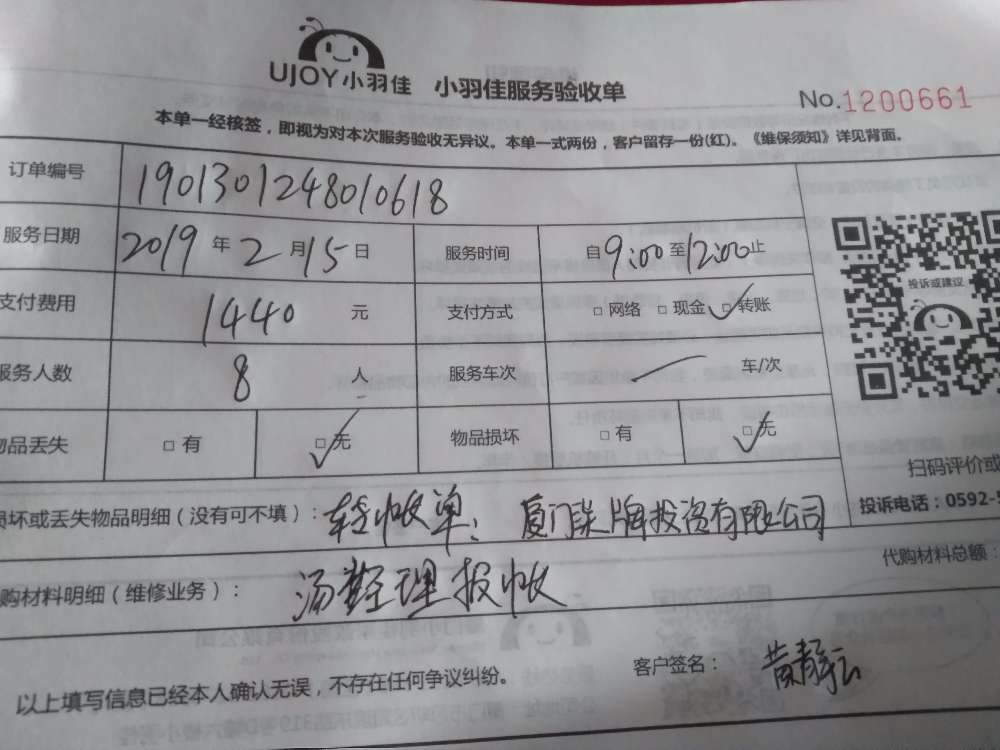 UJOY小羽佳 小羽佳服务验收单
No.1200661
本单一经核签，即视为对本次服务验收无异议。本单一式两份，客户留存一份(红)。《维保须知》详见背面。
订单编号 1901301248010618
服务日期 2019 年 2 月 15 日 服务时间 自 9:00 至 12:00 止
支付费用 1440 元 支付方式 □ 网络 □ 现金 □ 转账
服务人数 8 人 服务车次 车/次
物品丢失 □ 有 □ 无 物品损坏 □ 有 □ 无
投诉或建议
扫码评价或
投诉电话：0592-
损坏或丢失物品明细（没有可不填）： 转帐收单：厦门柒牌投资有限公司
购材料明细（维修业务）： 汤经理报帐
代购材料总额：
以上填写信息已经本人确认无误，不存在任何争议纠纷。
客户签名： 黄静云